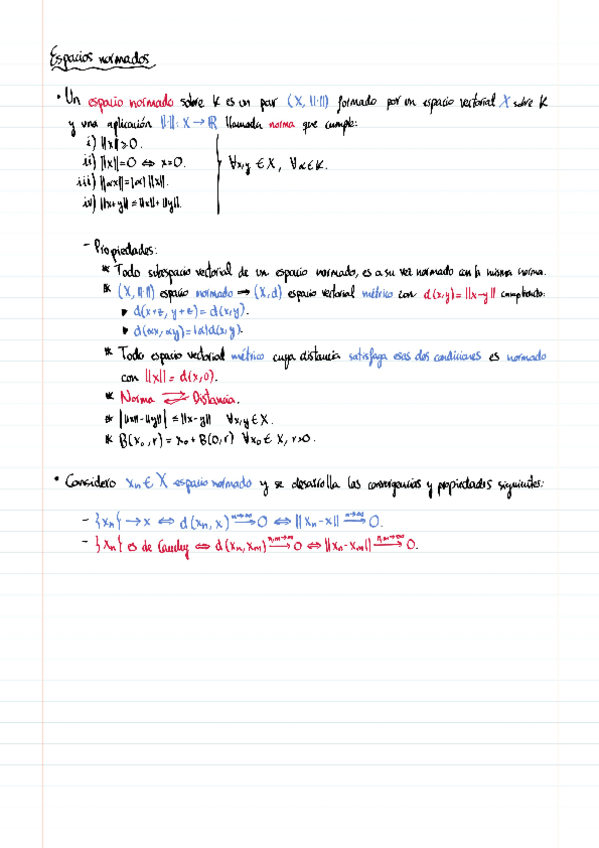 Espacios normados
· Un espacio normado sobre K es un par (X, ||·||) formado por un espacio vectorial X sobre K
y una aplicación ||·||: X → ℝ llamada norma que cumple:
i) ||x|| ≥ 0.
ii) ||x|| = 0 ⇔ x = 0.
iii) ||αx|| = |α| ||x||.
iv) ||x+y|| ≤ ||x|| + ||y||.
∀x,y ∈ X, ∀α ∈ K.
- Propiedades:
* Todo subespacio vectorial de un espacio normado, es a su vez normado con la misma norma.
* (X, ||·||) espacio normado ⇒ (X, d) espacio vectorial métrico con d(x,y) = ||x-y|| cumpliendo:
▸ d(x+z, y+z) = d(x,y).
▸ d(αx, αy) = |α| d(x,y).
* Todo espacio vectorial métrico cuya distancia satisfaga esas dos condiciones es normado
con ||x|| = d(x,0).
* Norma ⇄ Distancia.
* | ||x|| - ||y|| | ≤ ||x-y|| ∀x,y ∈ X.
* B(x₀, r) = x₀ + B(0, r) ∀x₀ ∈ X, r > 0.
· Considero xₙ ∈ X espacio normado y se desarrolla las convergencias y propiedades siguientes:
- {xₙ} → x ⇔ d(xₙ, x) n→∞ → 0 ⇔ ||xₙ - x|| n→∞ → 0.
- {xₙ} es de Cauchy ⇔ d(xₙ, xₘ) n,m→∞ → 0 ⇔ ||xₙ - xₘ|| n,m→∞ → 0.